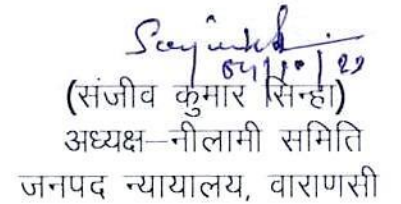 (संजीव कुमार सिन्हा)
अध्यक्ष–नीलामी समिति
जनपद न्यायालय, वाराणसी